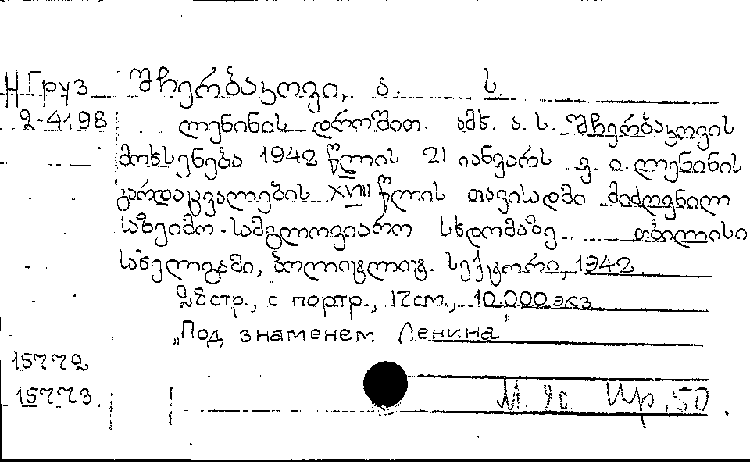 Н Груз შჩერბაკოვი, ა. ს.
2-4198 ლენინის დროშით. ამხ. ა. ს. შჩერბაკოვის
მოხსენება 1942 წლის 21 იანვარს ვ. ი. ლენინის
გარდაცვალების XVIII წლის თავისადმი მიძღვნილ
საზეიმო-სამგლოვიარო სხდომაზე. თბილისი
სახელგამი, პოლიტლიტ. სექტორი, 1942
28 стр., с портр., 17 см., 10.000 экз
„Под знаменем Ленина"
15772
15773.